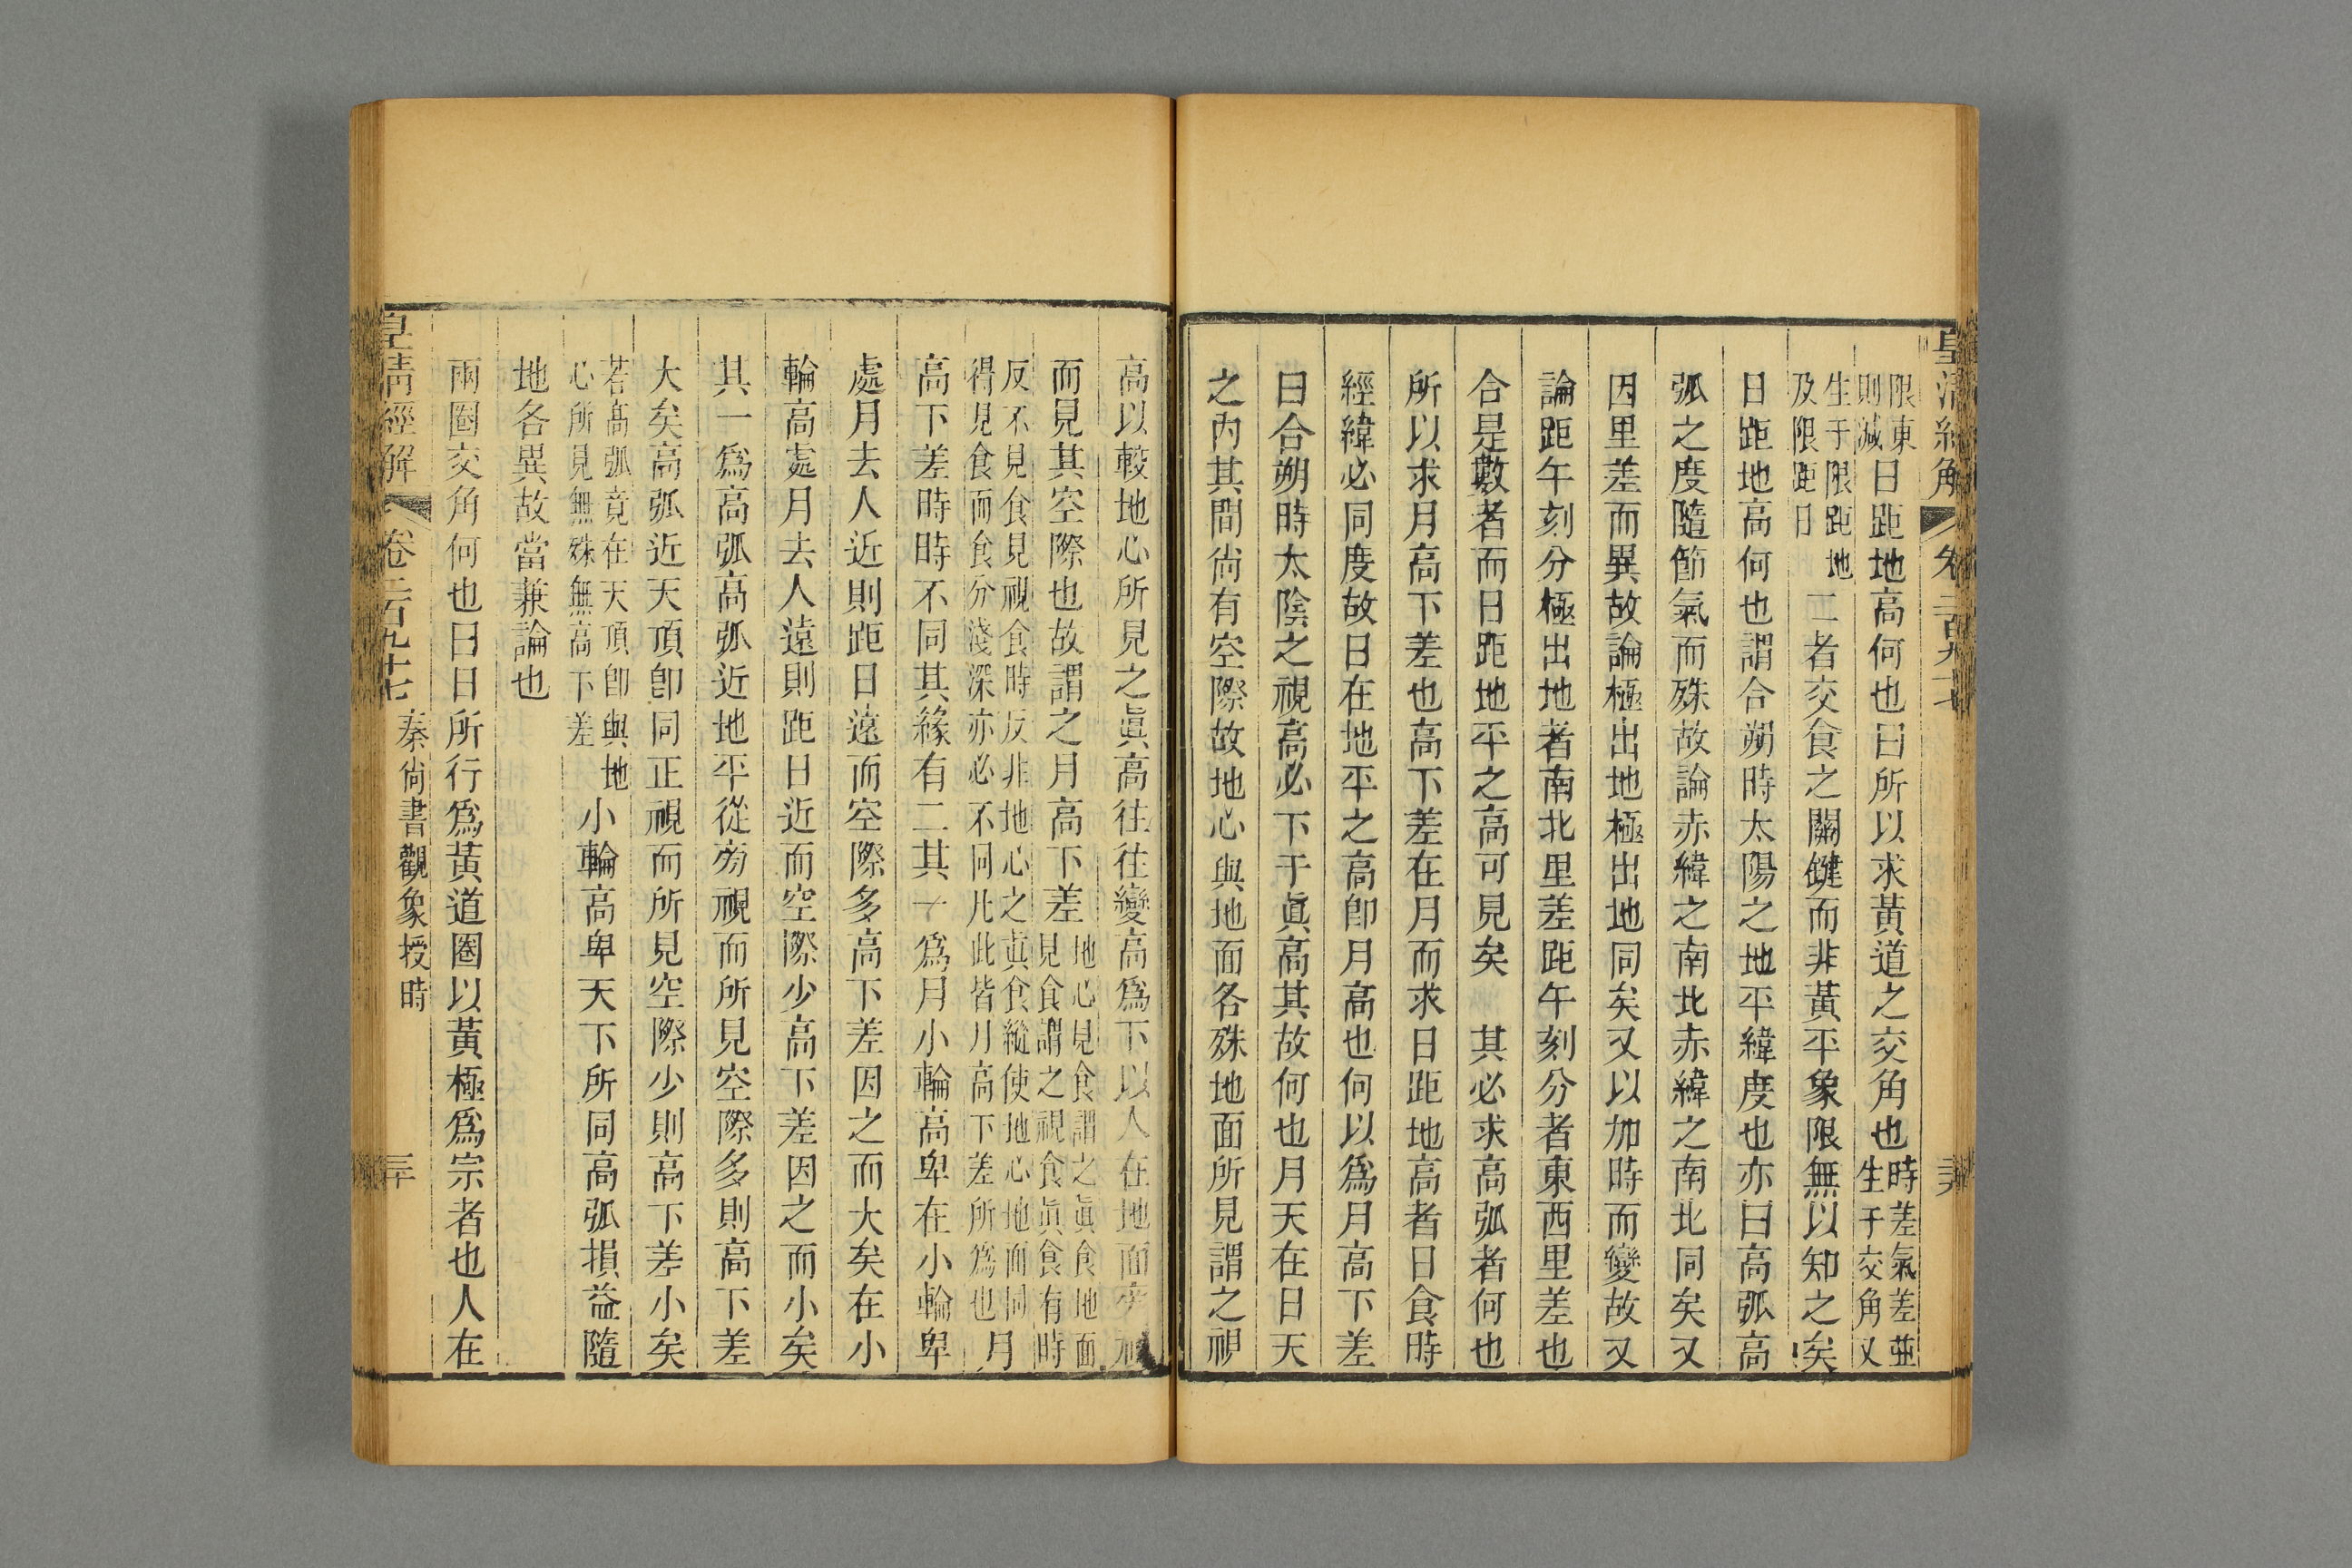 限東
則減
日距地高何也曰所以求黃道之交角也
時差氣差並
生于交角又
生于限距地
及限距日
二者交食之關鍵而非黃平象限無以知之矣
日距地高何也謂合朔時太陽之地平緯度也亦曰高弧高
弧之度隨節氣而殊故論赤緯之南北赤緯之南北同矣又
因里差而異故論極出地極出地同矣又以加時而變故又
論距午刻分極出地者南北里差距午刻分者東西里差也
合是數者而日距地平之高可見矣　其必求高弧者何也
所以求月高下差也高下差在月而求日距地高者日食時
經緯必同度故日在地平之高卽月高也何以爲月高下差
曰合朔時太陰之視高必下于眞高其故何也月天在日天
之內其間尙有空際故地心與地面各殊地面所見謂之視
高以較地心所見之眞高往往變高爲下以人在地面旁視
而見其空際也故謂之月高下差
地心見食謂之眞食地面
見食謂之視食眞食有時
反不見食見視食時反非地心之眞食縱使地心地面同
得見食而食分淺深亦必不同凡此皆月高下差所爲也
月
高下差時時不同其緣有二其一爲月小輪高卑在小輪卑
處月去人近則距日遠而空際多高下差因之而大矣在小
輪高處月去人遠則距日近而空際少高下差因之而小矣
其一爲高弧高弧近地平從旁視而所見空際多則高下差
大矣高弧近天頂卽同正視而所見空際少則高下差小矣
若高弧竟在天頂卽與地
心所見無殊無高下差
小輪高卑天下所同高弧損益隨
地各異故當兼論也
兩圈交角何也曰日所行爲黃道圈以黃極爲宗者也人在
皇清經解
卷二百九十七
秦尙書觀象授時
三十